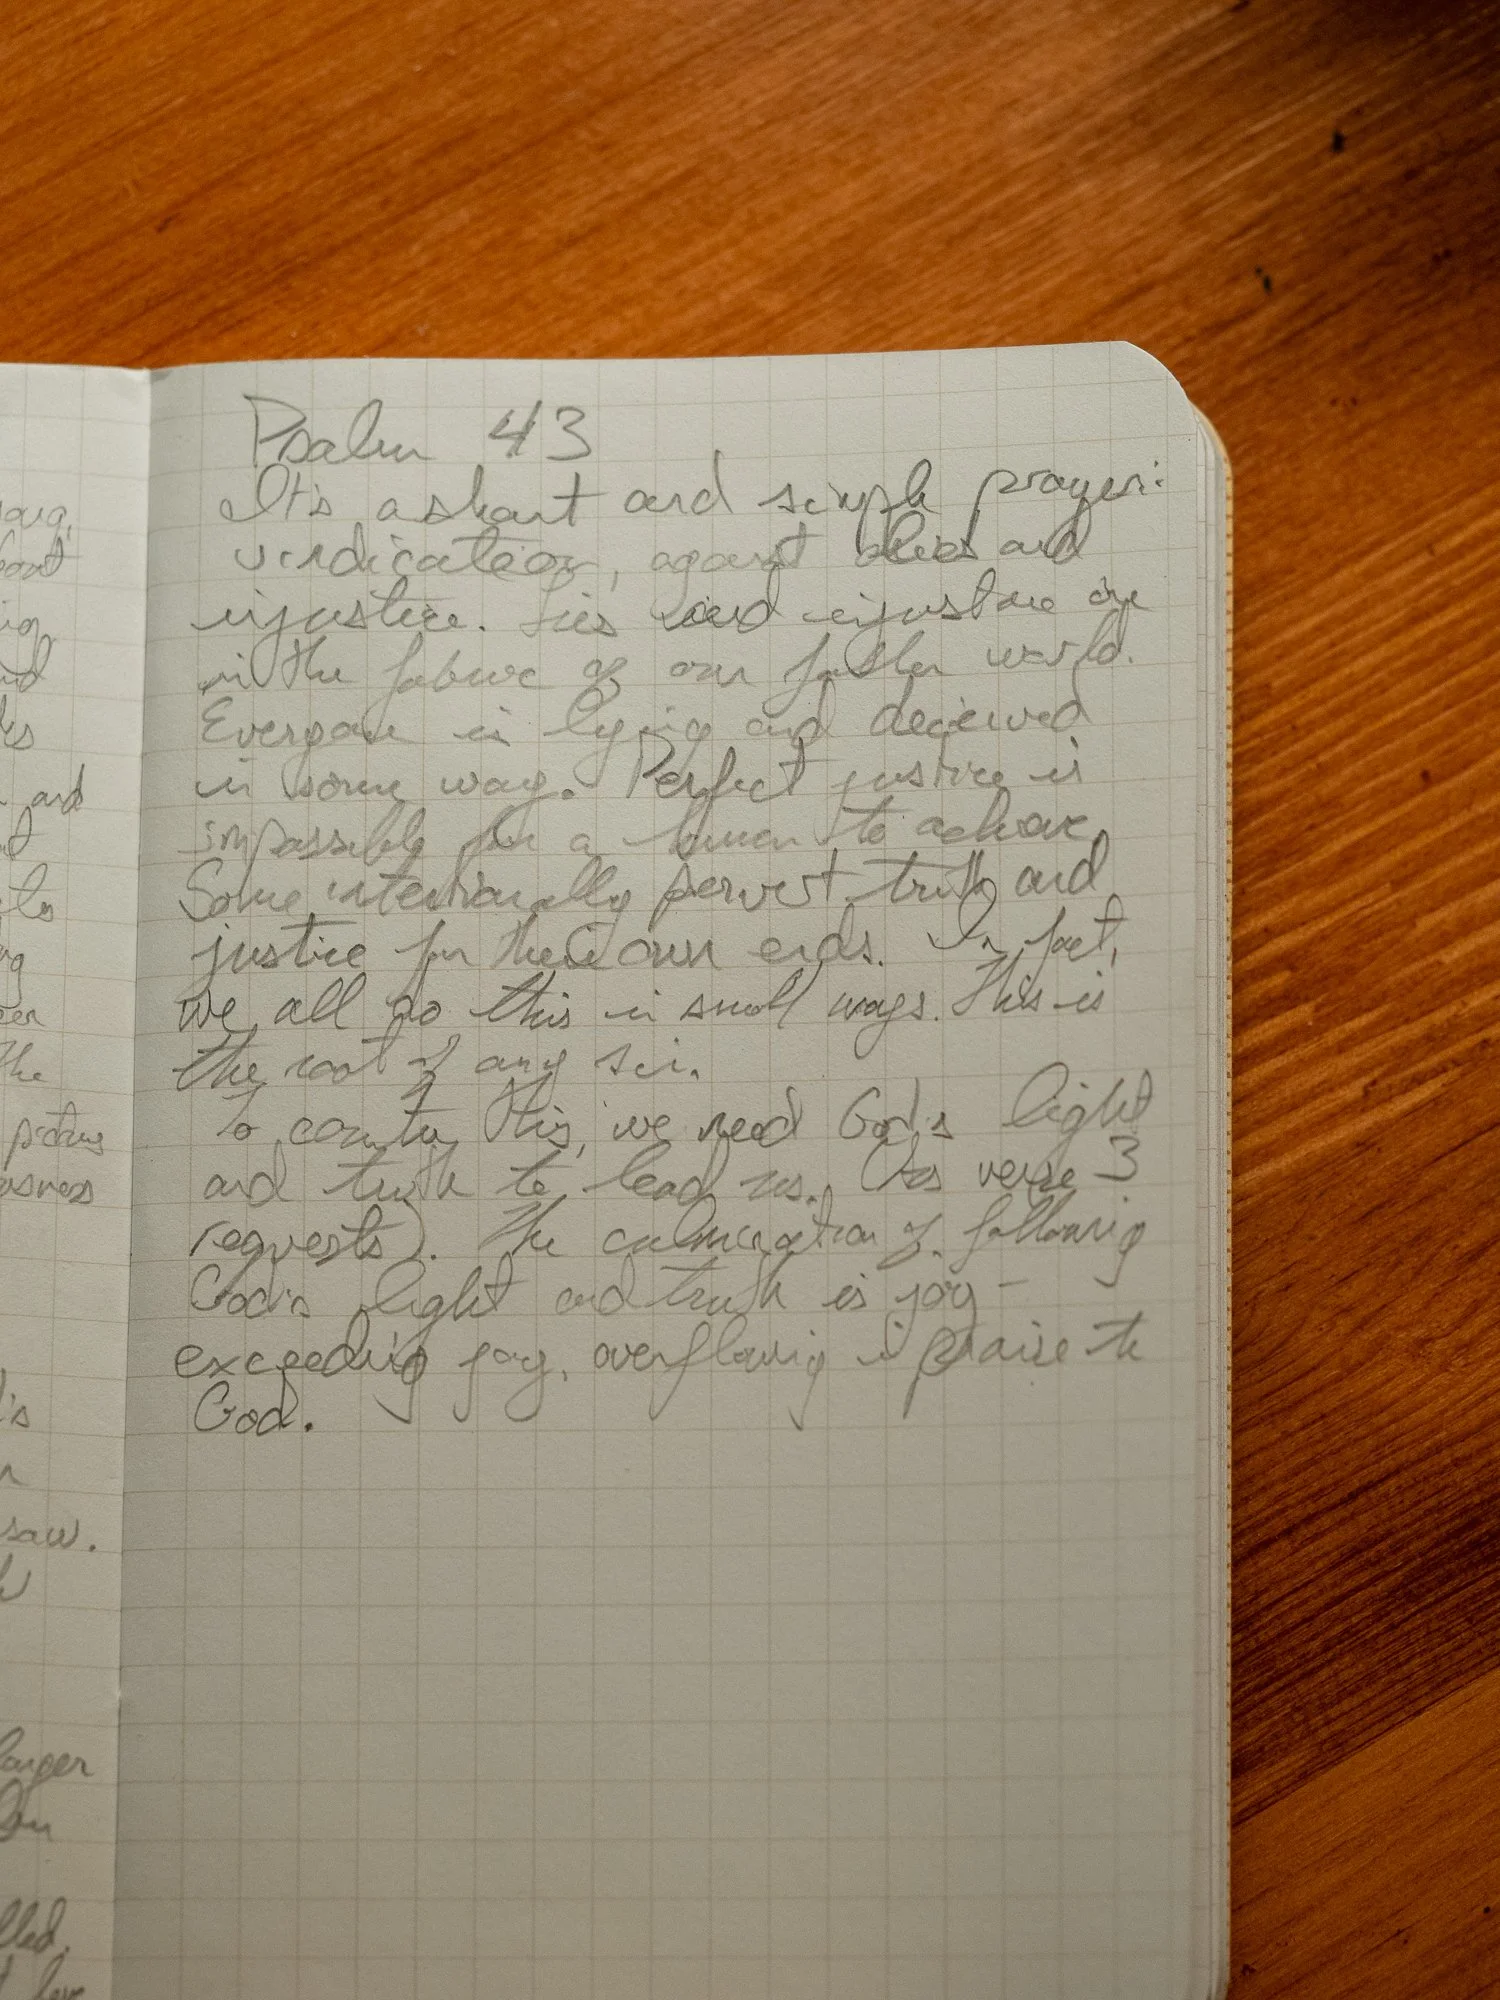 Psalm 43
It's a short and simple prayer:
vindication, against lies and
injustice. Lies and injustice are
in the fabric of our fallen world.
Everyone is lying and deceived
in some way. Perfect justice is
impossible for a human to achieve.
Some intentionally pervert truth and
justice for their own ends. In fact,
we all do this in small ways. This is
the root of any sin.
To counter this, we need God's light
and truth to lead us. (As verse 3
requests). The culmination of following
God's light and truth is joy -
exceeding joy, overflowing in praise to
God.
and
to
the
saw.
larger